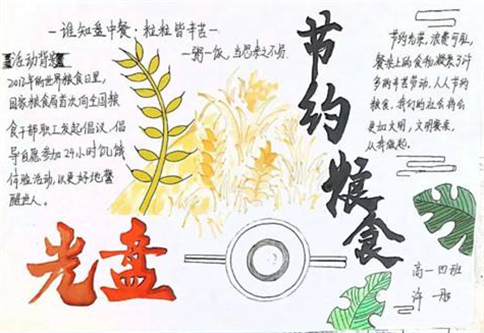 -谁知盘中餐·粒粒皆辛苦-
一粥一饭，当思来之不易
活动背景
2012年的世界粮食日里，
国家粮食局首次向全国粮
食干部职工发起倡议，倡
导自愿参加24小时饥饿
体验活动，以更好地警
醒世人。
节约粮食
节约光荣，浪费可耻，
餐桌上的食物凝聚了许
多的辛苦劳动，人人节约
粮食，我们的社会将会
更加文明，文明餐桌，
从我做起。
光盘
高一四班
许